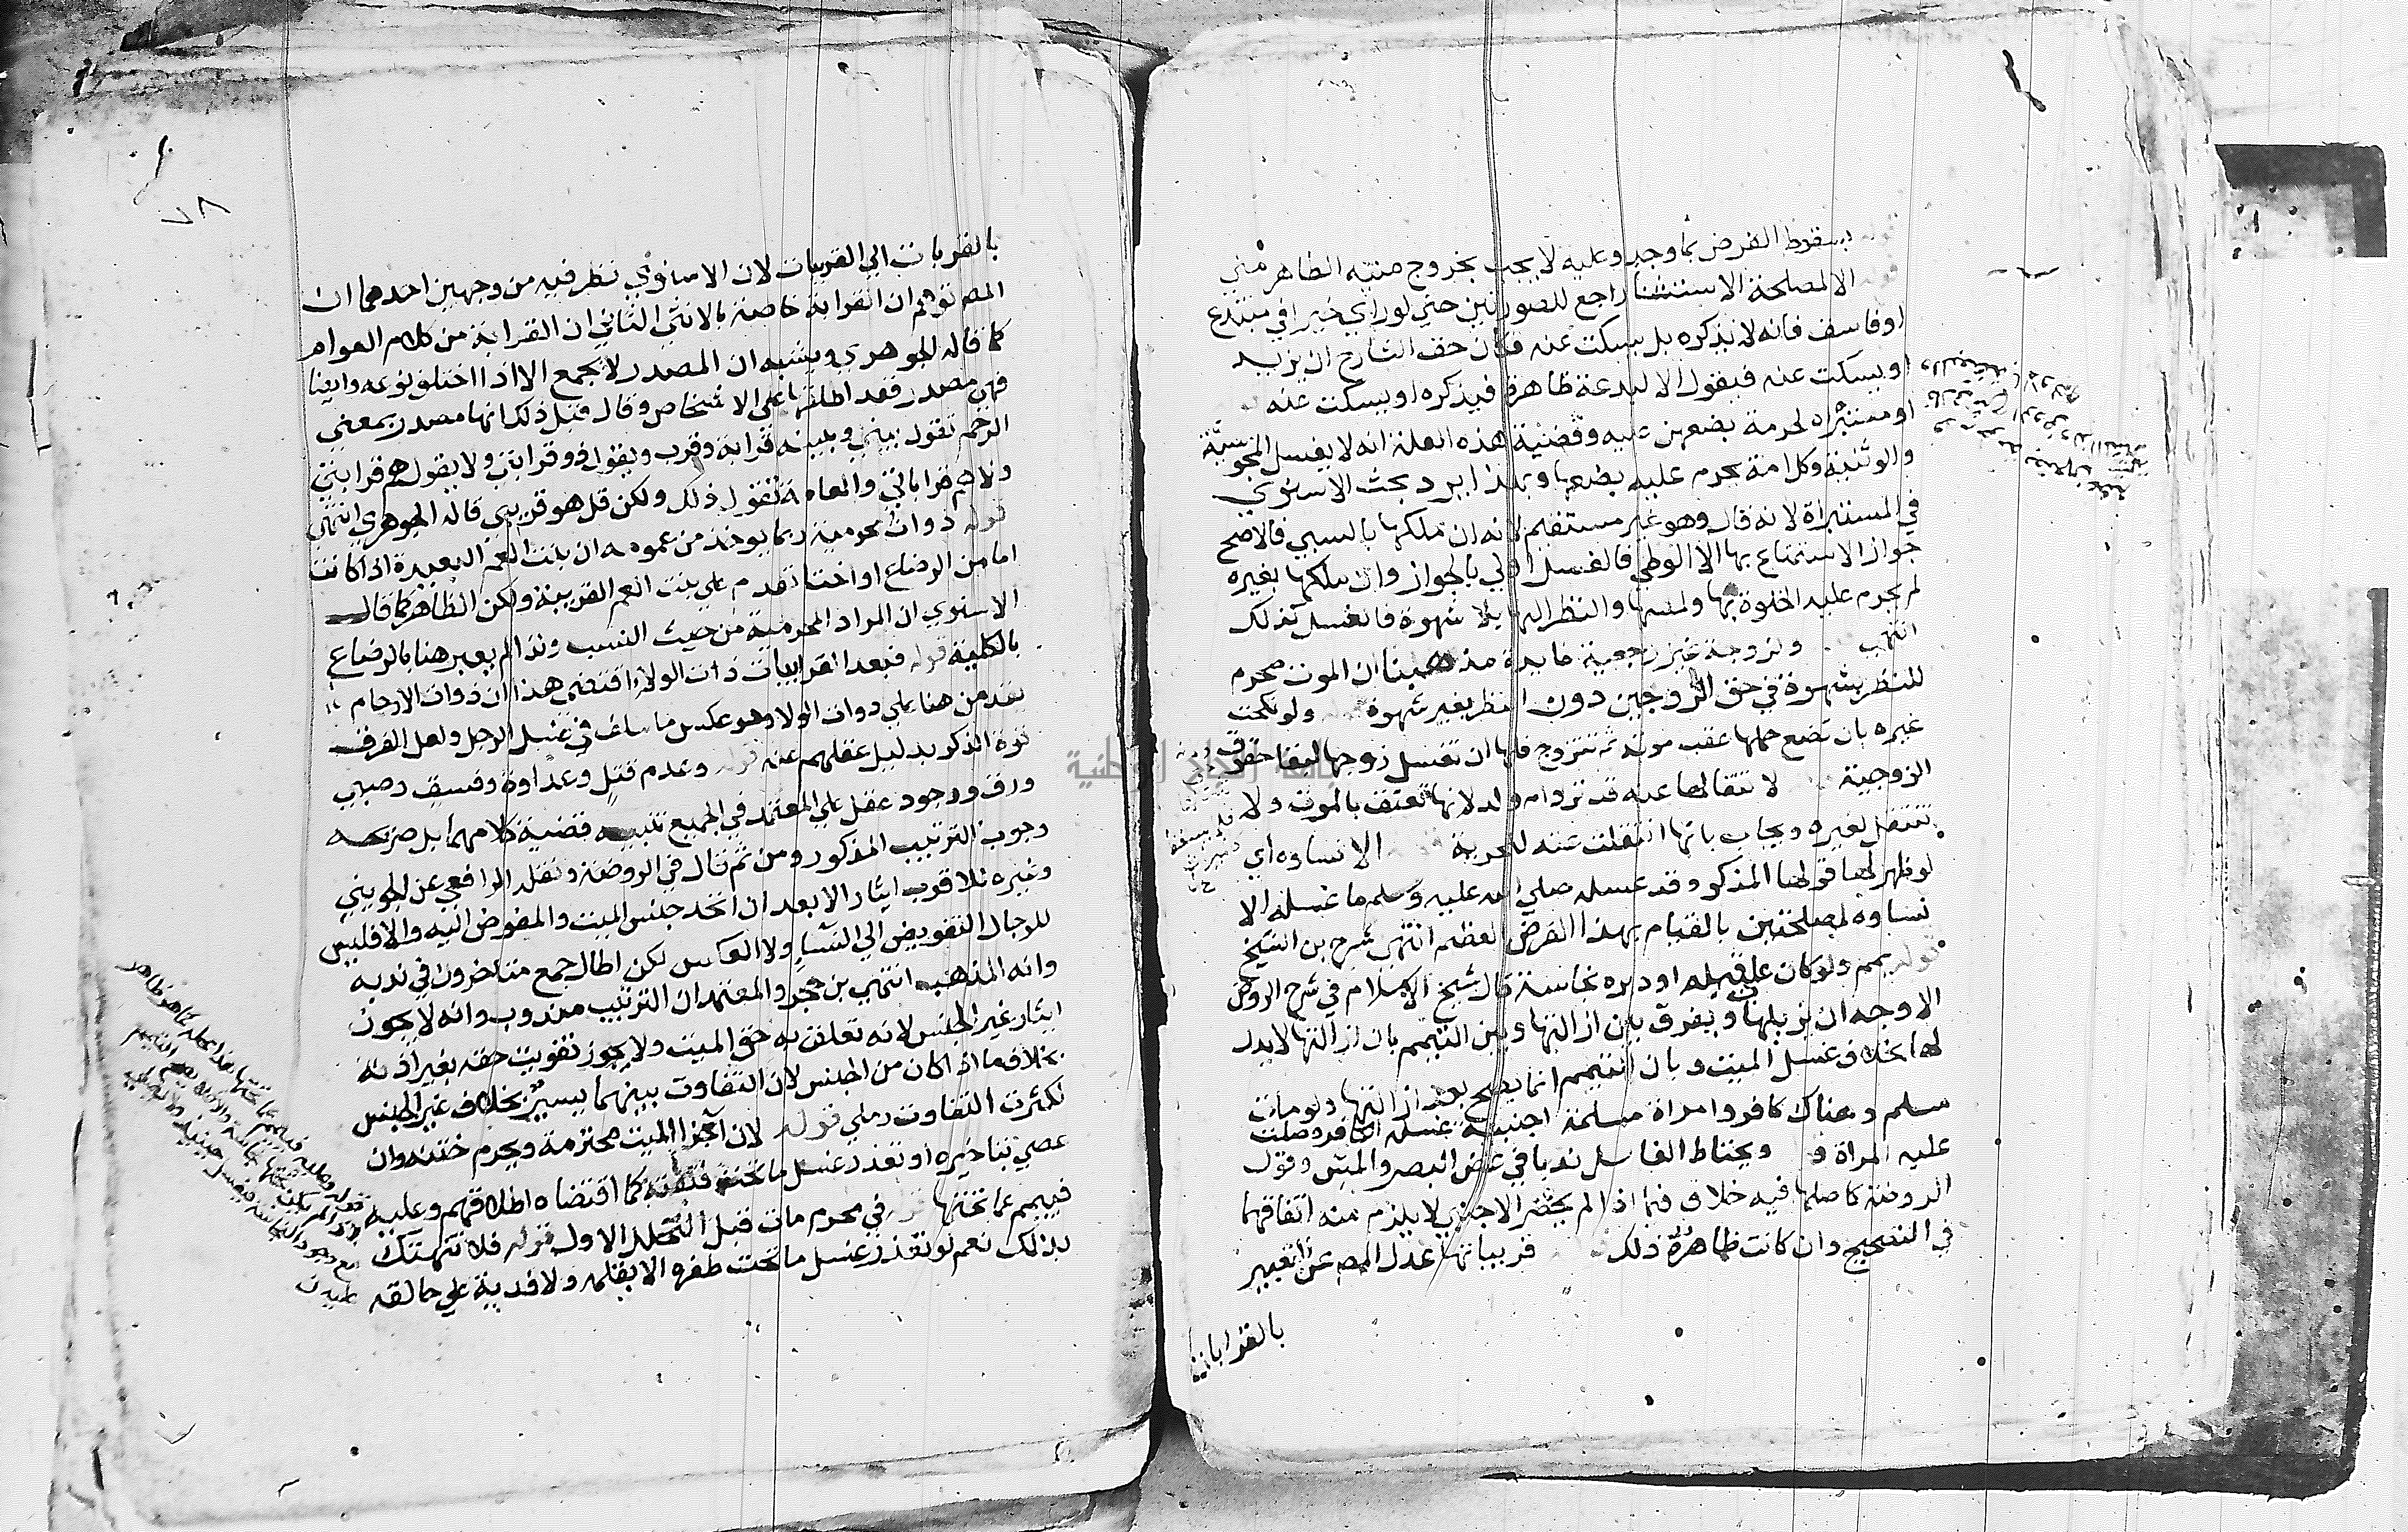 بسقوط الفرض بما وجد وعليه لا يجب بخروج منيه الطاهر مني
الا لمصلحة الاستثنا راجع للصورتين حتي لو راي خيرا في مبتدع
او فاسق فانه لا يذكره بل يسكت عنه فكان حق الشارح ان يزيد
او يسكت عنه فيقول الا لبدعة ظاهرة فيذكره او يسكت عنه
او مستبراه لحرمة بضعهن عليه وقضية هذه العلة انه لا يغسل المجوسية
والوثنية وكل امة يحرم عليه بضعها وبهذا يرد بحث الاسنوي
في المستبراة لانه قال وهو غير مستقيم لانه ان ملكها بالسبي فالاصح
جواز الاستمتاع بها الا الوطي فالغسل اولي بالجواز وان ملكها بغيره
لم يحرم عليه الخلوة بها ولمسها والنظر اليها بلا شهوة فالغسل كذلك
انتهي وزوجة غير رجعية فايدة مذهبنا ان الموت محرم
للنظر بشهوة في حق الزوجين دون النظر بغير شهوة ولو نكحت
غيره بان تضع حملها عقب موته ثم تتزوج فلها ان تغسل زوجها لبقا حقوق
الزوجية لا تنقالها عنه قد ترد ام ولد لانها تعتق بالموت ولا
تنتقل لغيره ويجاب بانها انتقلت عنه للحرية الا نساوه اي
لو ظهر لها قولها المذكور وقد غسله صلي الله عليه وسلم ما غسله الا
نساوه لمصلحتهن بالقيام بهذا الفرض العظيم انتهي شرح بن الشيخ
قوله يمم ولو كان علي قبله او دبره نجاسة قال شيخ الاسلام في شرح الروض
الاوجه ان يزيلها ويفرق بان ازالتها وبين التيمم بان ازالتها لا بدل
لها بخلاف غسل الميت وبان التيمم انما يصح بعد ازالتها ولو مات
مسلم وهناك كافر وامراة مسلمة اجنبية غسله الكافر وصلت
عليه المراة ويحتاط الغاسل ندبا في غض البصر والمس وقول
الروضة كاصلها فيه خلاف فيما اذا لم يحضر الاجنبي لا يلزم منه اتفاقهما
في التصحيح وان كانت ظاهرة ذلك قريباتها عدل المص عن تعبير
بالقرابات
٧٨
بالقربات الي القريبات لان الاسنوي نظر فيه من وجهين احدهما ان
المص توهم ان القرابة خاصة بالانثي الثاني ان القرابة من كلام العوام
كما قاله الجوهري ويشبه ان المصدر لا يجمع الا اذا اختلف نوعه وايضا
فهي مصدر فقد اطلقها علي الاشخاص وقال قبل ذلك انها مصدر بمعني
الرحم تقول بيني وبينه قرابة وقرب ويقول ذو قرابتي ولا يقول هم قرابتي
ولا هم قراباتي والعامة تقول ذلك ولكن قل هو قريبي قاله الجوهري انتهي
قوله ذوات محرمية ربما يوخذ من عمومه ان بنت العم البعيدة اذا كانت
اما من الرضاع او اختا تقدم علي بنت العم القريبة ولكن الظاهر كما قال
الاسنوي ان المراد المحرمية من حيث النسب ولذا لم يعبر هنا بالرضاع
بالكلية قوله فبعد القرابات ذات الولاء اقتضي هذا ان ذوات الارحام
تقدمن هنا علي ذوات الولا وهو عكس ما سلف في غسل الرجل ولعل الفرق
قوة الذكر بدليل عقلهم عنه قوله وعدم قتل وعداوة وفسق وصبي
ورق ووجود عقل علي المعتمد في الجميع تنبيه قضية كلامهما بل صريحه
وجوب الترتيب المذكور ومن ثم قال في الروضة ونقله الرافعي عن الجويني
وغيره للاقرب ايثار الابعد ان اتحد جنس الميت والمفوض اليه والا فليس
للرجال التفويض الي النساء ولا العكس لكن اطال جمع متاخرون في ندبه
وانه المذهب انتهي بن حجر والمعتمد ان الترتيب مندوب وانه لا يجوز
ايثار غير الجنس لانه تعلق به حق الميت ولا يجوز تفويت حقه بغير اذنه
بخلاف ما اذا كان من الجنس لان التفاوت بينهما يسير بخلاف غير الجنس
لكثرت التفاوت رملي قوله لان اجزا الميت محترمة ويحرم ختنه وان
عصي بتاخيره او تعذر غسل ما تحت قلفته كما اقتضاه اطلاقهم وعليه
فييمم عما تحتها قوله في محرم مات قبل التحلل الاول قوله فلا تنهتك
بذلك نعم لو تعذر غسل ما تحت ظفره الا بقلمه ولا فدية علي حالقه